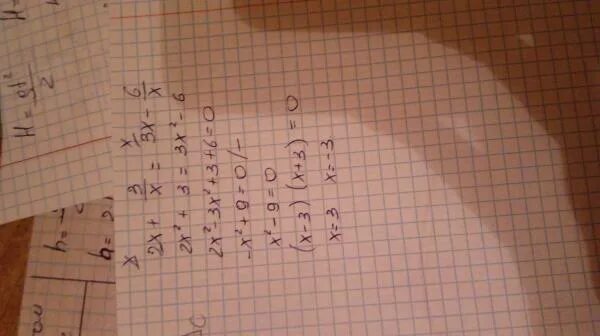 H = gt²/2
2x + 3/x = 3x - 6/x
2x² + 3 = 3x² - 6
2x² - 3x² + 3 + 6 = 0
-x² + 9 = 0 /-
x² - 9 = 0
(x-3) (x+3) = 0
x = 3 x = -3